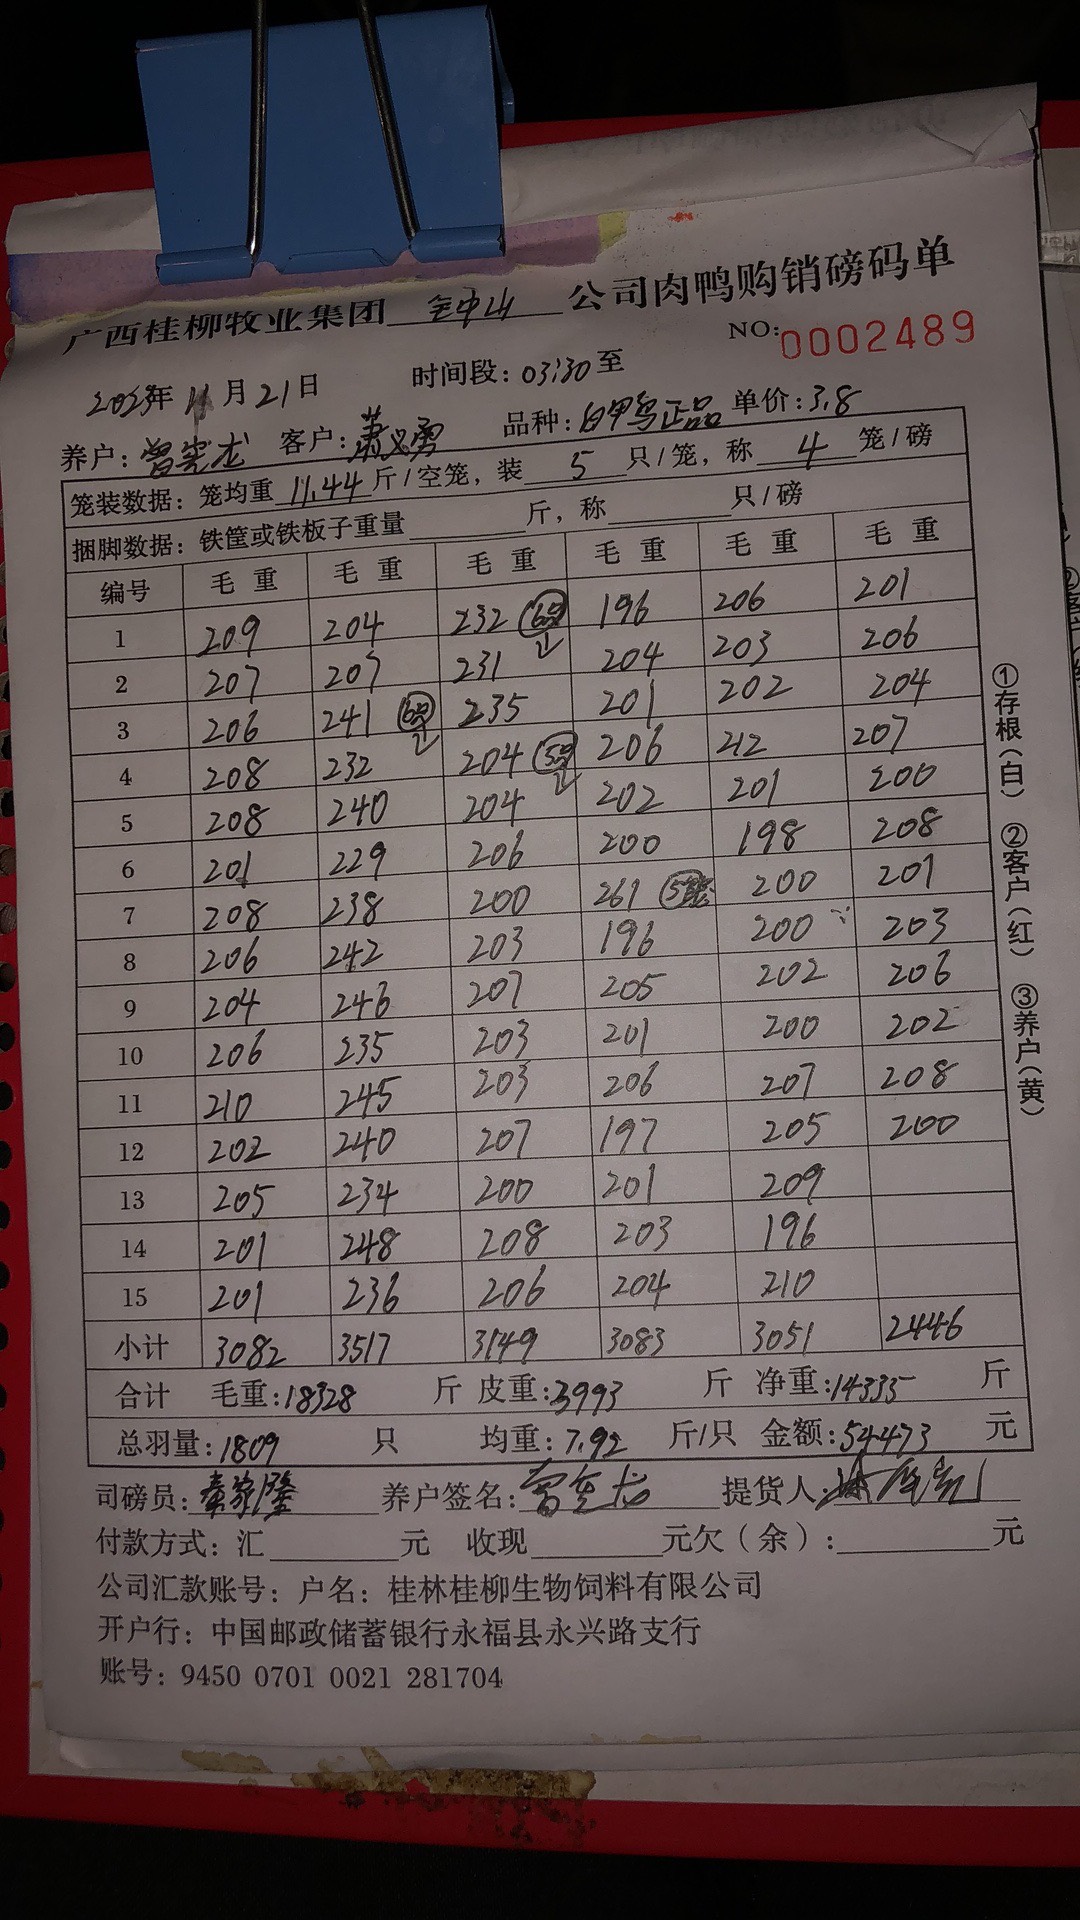 广西桂柳牧业集团 钟山 公司肉鸭购销磅码单
NO: 0002489
2023年 11月21日 时间段: 03:30 至
养户: 曾宪龙 客户: 萧义勇 品种: 白甲鸟正品 单价: 3.8
笼装数据: 笼均重 11.44 斤/空笼, 装 5 只/笼, 称 4 笼/磅
捆脚数据: 铁筐或铁板子重量 斤, 称 只/磅
编号 毛重 毛重 毛重 毛重 毛重 毛重
1 209 204 232 196 206 201
2 207 207 231 204 203 206
3 206 241 235 201 202 204
4 208 232 204 206 212 207
5 208 240 204 202 201 200
6 201 229 206 200 198 208
7 208 238 200 261 200 201
8 206 242 203 196 200 203
9 204 246 207 205 202 206
10 206 235 203 201 200 202
11 210 245 203 206 207 208
12 202 240 207 197 205 200
13 205 234 200 201 209
14 201 248 208 203 196
15 201 236 206 204 210
小计 3082 3517 3149 3083 3051 2446
合计 毛重: 18328 斤 皮重: 3993 斤 净重: 14335 斤
总羽量: 1809 只 均重: 7.92 斤/只 金额: 54473 元
司磅员: 秦家隆 养户签名: 曾宪龙 提货人:
付款方式: 汇 元 收现 元欠(余): 元
公司汇款账号: 户名: 桂林桂柳生物饲料有限公司
开户行: 中国邮政储蓄银行永福县永兴路支行
账号: 9450 0701 0021 281704
①存根(白) ②客户(红) ③养户(黄)